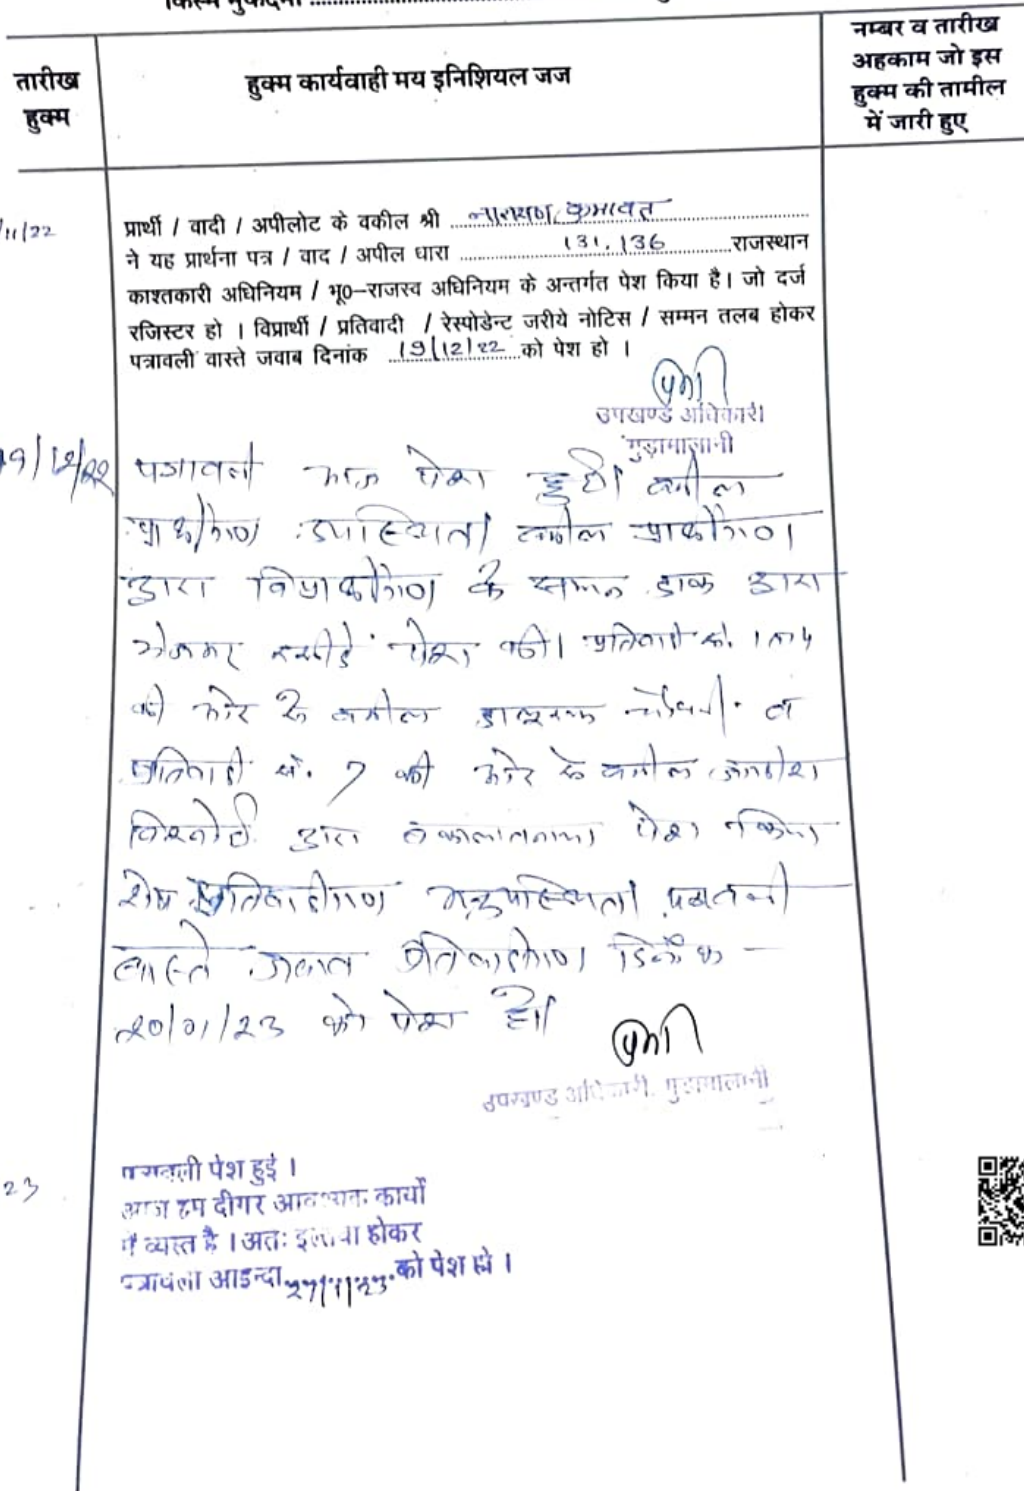 किस्म मुकदमा
तारीख हुक्म
हुक्म कार्यवाही मय इनिशियल जज
नम्बर व तारीख
अहकाम जो इस
हुक्म की तामील
में जारी हुए
/11/22
प्रार्थी / वादी / अपीलोट के वकील श्री नारायण कुमावत
ने यह प्रार्थना पत्र / वाद / अपील धारा 131, 136 राजस्थान
काश्तकारी अधिनियम / भू०-राजस्व अधिनियम के अन्तर्गत पेश किया है। जो दर्ज
रजिस्टर हो । विप्रार्थी / प्रतिवादी / रेस्पोडेन्ट जरीये नोटिस / सम्मन तलब होकर
पत्रावली वास्ते जवाब दिनांक 19/12/22 को पेश हो ।
उपखण्ड अधिकारी
गुड़ामालानी
19/12/22
पत्रावली आज पेश हुयी। वकील
प्रार्थीगण उपस्थित। वकील प्रार्थीगण
द्वारा विप्रार्थीगण के सम्मन डाक द्वारा
भेजकर रसीदे पेश की। प्रतिवादी सं. 1 ता 4
की ओर से वकील चौधरी व
प्रतिवादी सं. 7 की ओर से वकील जगदीश
विश्नोई द्वारा वकालतनामा पेश किया
शेष प्रतिवादीगण अनुपस्थित। पत्रावली
वास्ते जवाब प्रतिवादीगण दिनाँक
20/01/23 को पेश हो।
उपखण्ड अधिकारी, गुड़ामालानी
23
पत्रावली पेश हुई ।
आज हम दीगर आवश्यक कार्यो
में व्यस्त है । अतः इल्तवा होकर
पत्रावली आइन्दा 27/1/23 को पेश हो ।